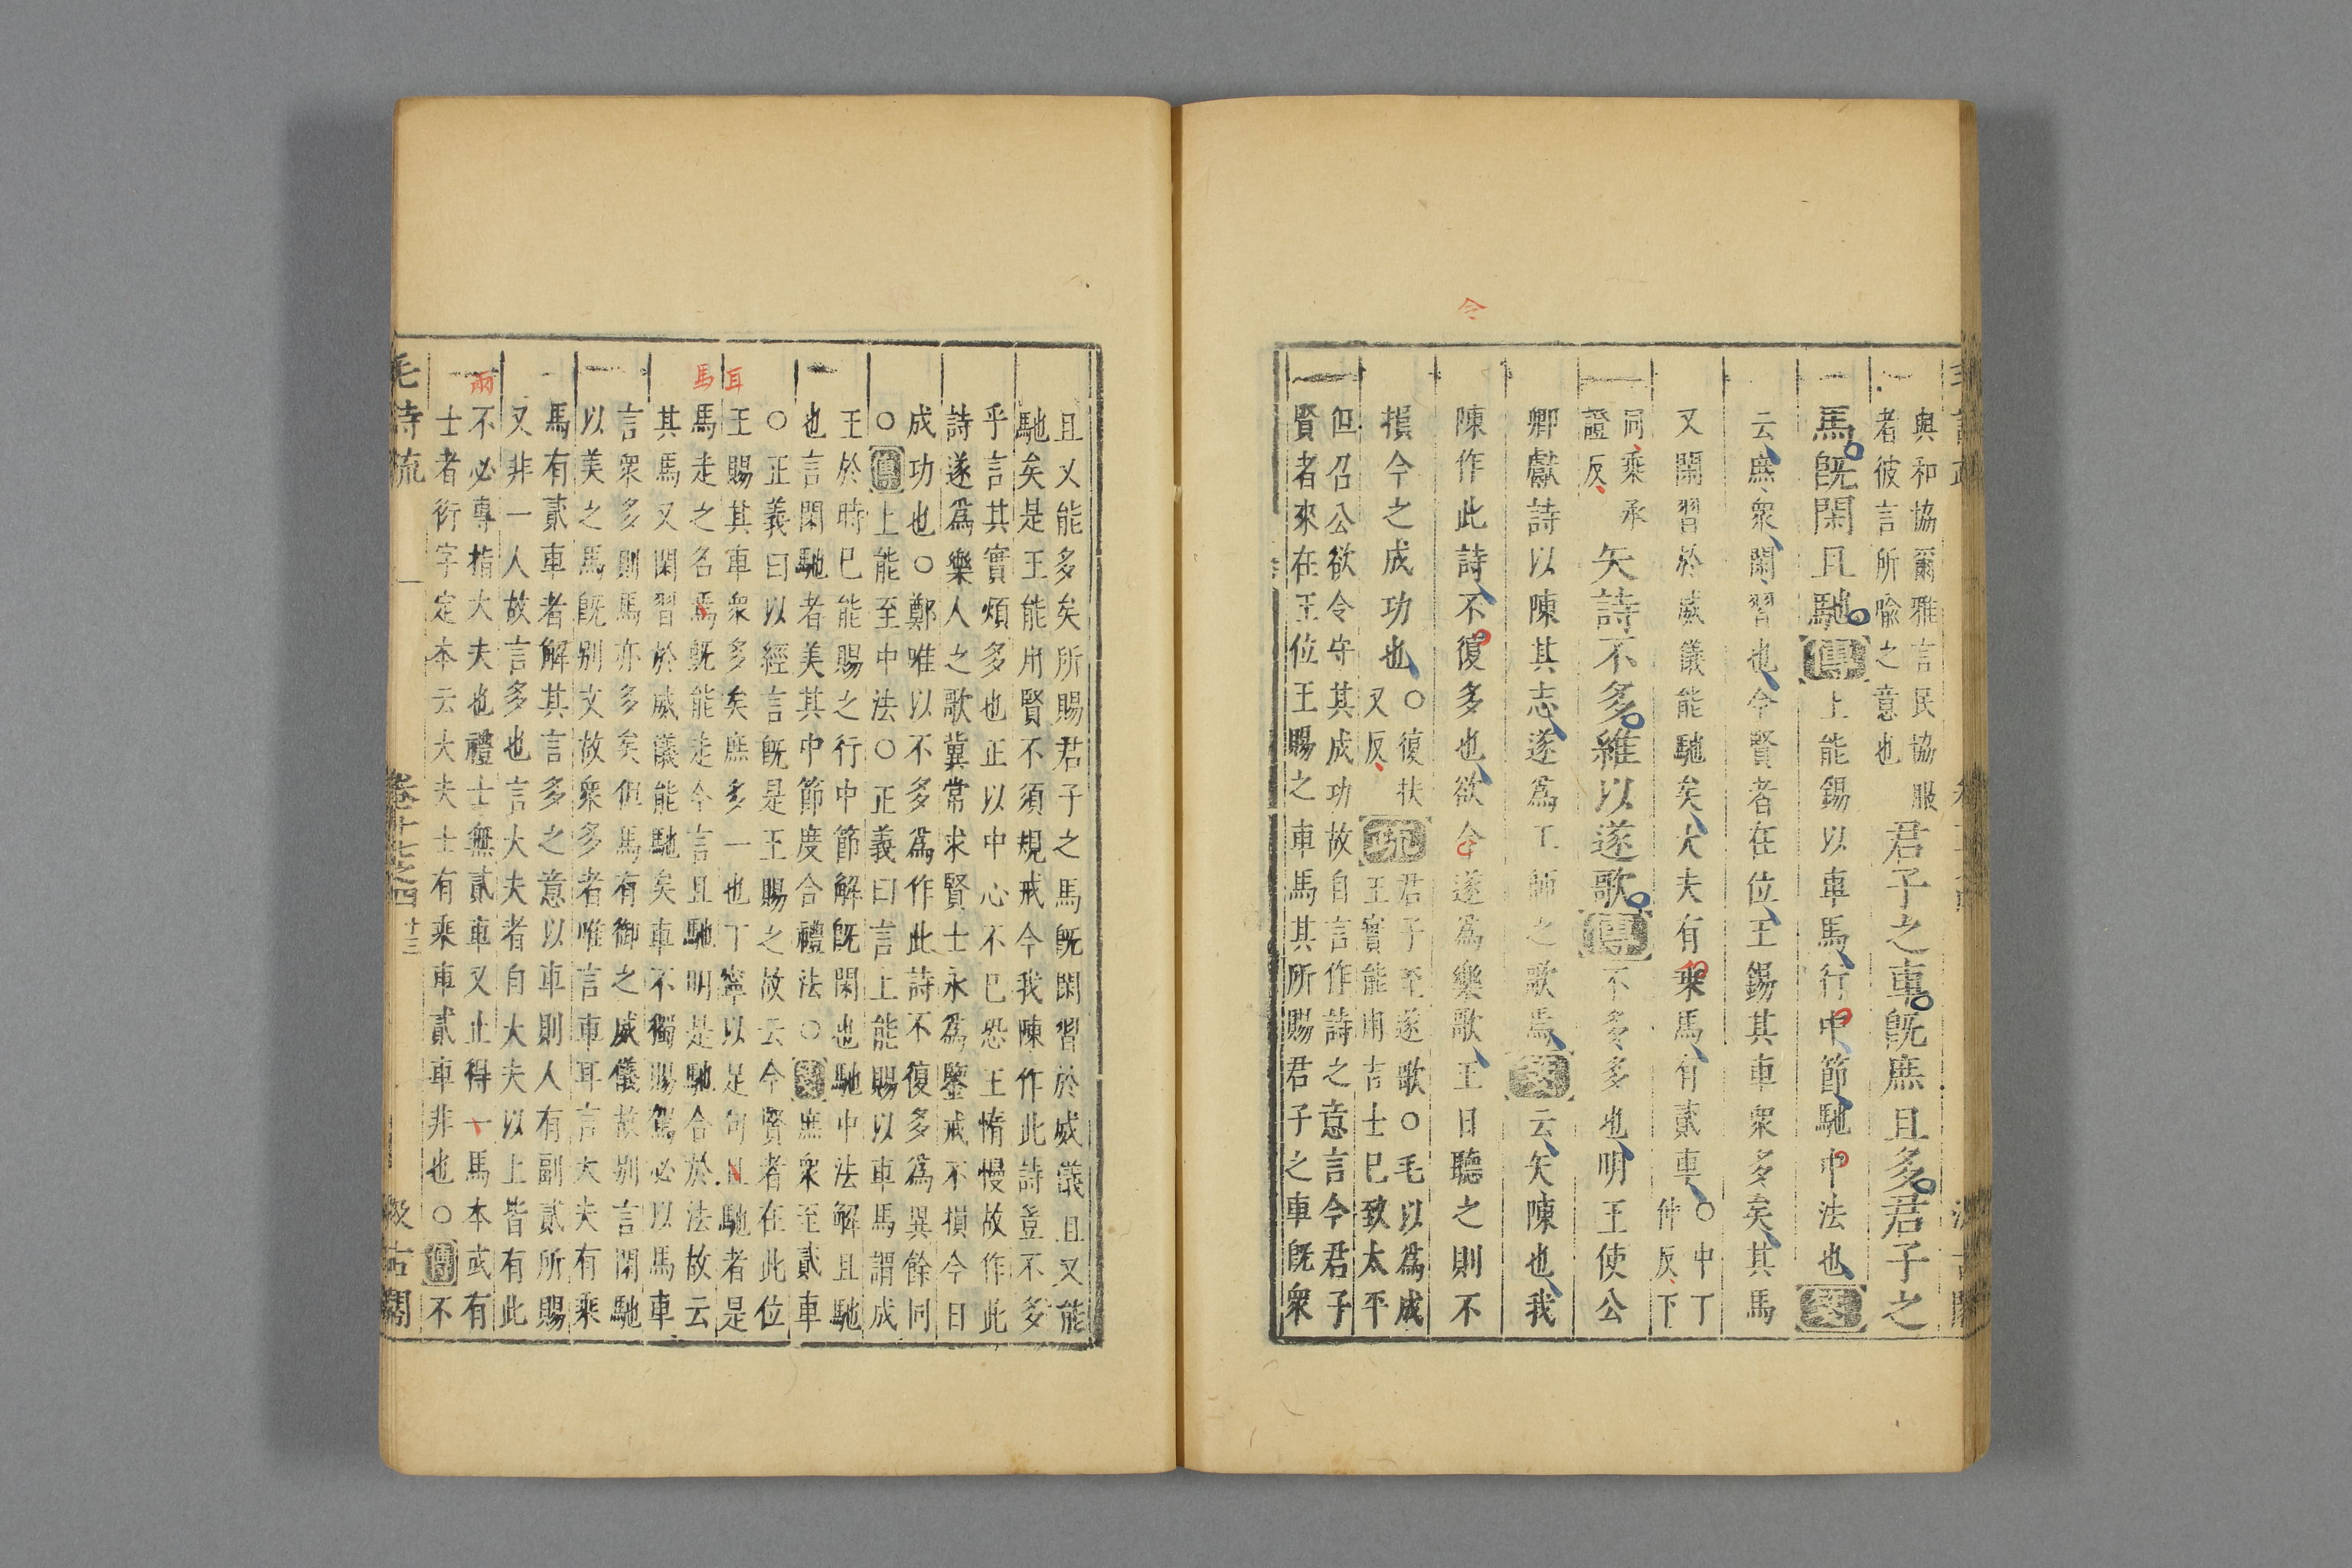 令
與和協爾雅言民協服
者彼言所喻之意也
君子之車旣庶且多君子之
馬旣閑且馳傳上能錫以車馬行中節馳中法也箋
云庶衆閑習也今賢者在位王錫其車衆多矣其馬
又閑習於威儀能馳矣大夫有乘馬有貳車
○中丁
仲反下
同乘承
證反
矢詩不多維以遂歌傳不多多也明王使公
卿獻詩以陳其志遂爲工師之歌焉箋云矢陳也我
陳作此詩不復多也欲今遂爲樂歌王日聽之則不
損今之成功也
○復扶
又反
疏
君子至遂歌○毛以爲成
王實能用吉士巳致太平
但召公欲令守其成功故自言作詩之意言今君子
賢者來在王位王賜之車馬其所賜君子之車旣衆
且又能多矣所賜君子之馬旣閑習於威儀且又能
馳矣是王能用賢不須規戒今我陳作此詩豈不多
乎言其實煩多也正以中心不巳恐王惰慢故作此
詩遂爲樂人之歌冀常求賢士永爲鑒戒不損今日
成功也○鄭唯以不多爲作此詩不復多爲異餘同
○傳上能至中法○正義曰言上能賜以車馬謂成
王於時巳能賜之行中節解旣閑也馳中法解且馳
也言閑馳者美其中節度合禮法○箋庶衆至貳車
○正義曰以經言旣是王賜之故云今賢者在此位
王賜其車衆多矣庶多一也丁寧以足句且馳者是
馬走之名馬旣能走今言且馳明是馳合於法故云
其馬又閑習於威儀能馳矣車不獨賜駕必以馬車
言衆多則馬亦多矣但馬有御之威儀故別言閑馳
以美之馬旣別文故衆多者唯言車耳言大夫有乘
馬有貳車者解其言多之意以車則人有副貳所賜
又非一人故言多也言大夫者自大夫以上皆有此
不必專指大夫也禮士無貳車又止得一馬本或有
士者衍字定本云大夫士有乘車貳車非也○傳不
耳
馬
兩
毛詩疏
卷十七之四
廿三
汲古閣